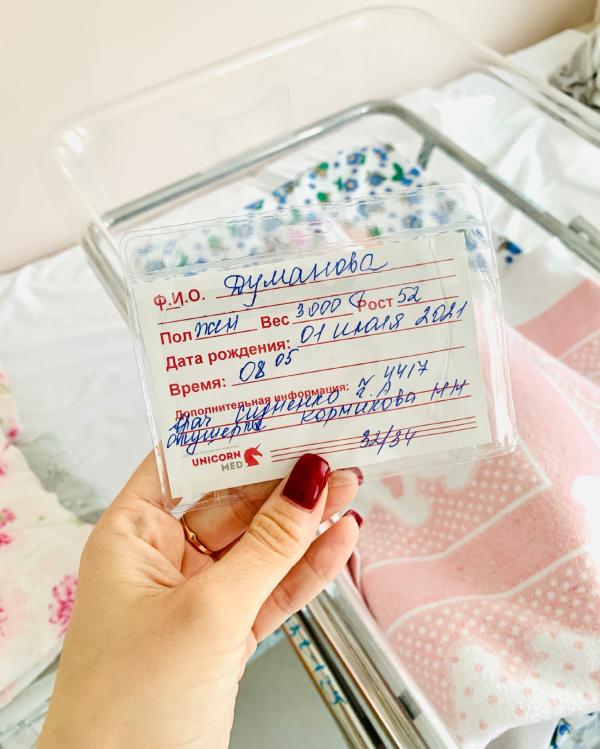 Ф.И.О. Думанова
Пол жен Вес 3000 г Рост 52
Дата рождения: 01 июля 2021
Время: 08 05
Дополнительная информация: № 4417
Врач
акушерка Кормикова Н Н
32/34
UNICORN
MED